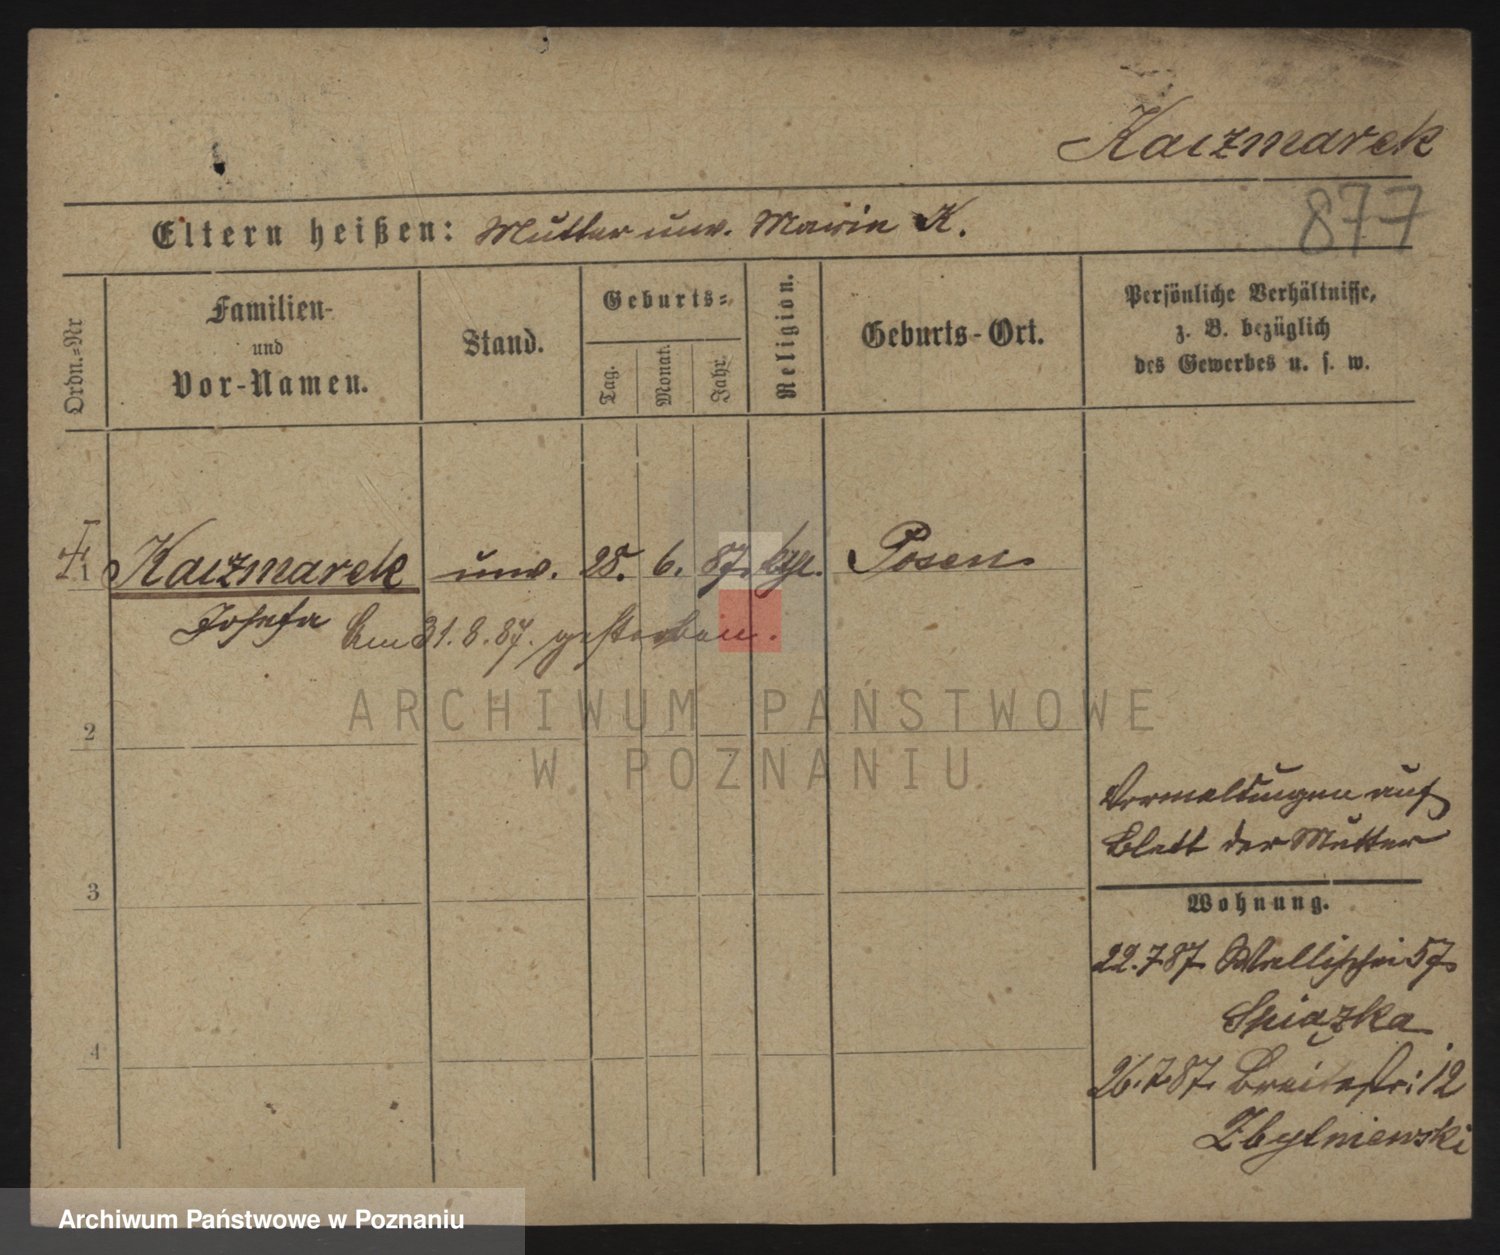 Kaczmarek
877
Eltern heißen: Mutter unv. Marie K.
Ordn.=Nr
Familien-
und
Vor-Namen.
Stand.
Geburts=
Tag.
Monat.
Jahr.
Religion.
Geburts-Ort.
Persönliche Verhältnisse,
z. B. bezüglich
des Gewerbes u. s. w.
1 Kaczmarek unv. 28. 6. 87. Posen
Josefa Am 31.8.87. gestorben.
2
3
4
Vormeldungen auf
Blatt der Mutter
Wohnung.
22.7.87. Wallischei 57.
Spiązka
26.7.87. Breitestr: 12
Zbytniewski
ARCHIWUM PAŃSTWOWE
W POZNANIU
Archiwum Państwowe w Poznaniu